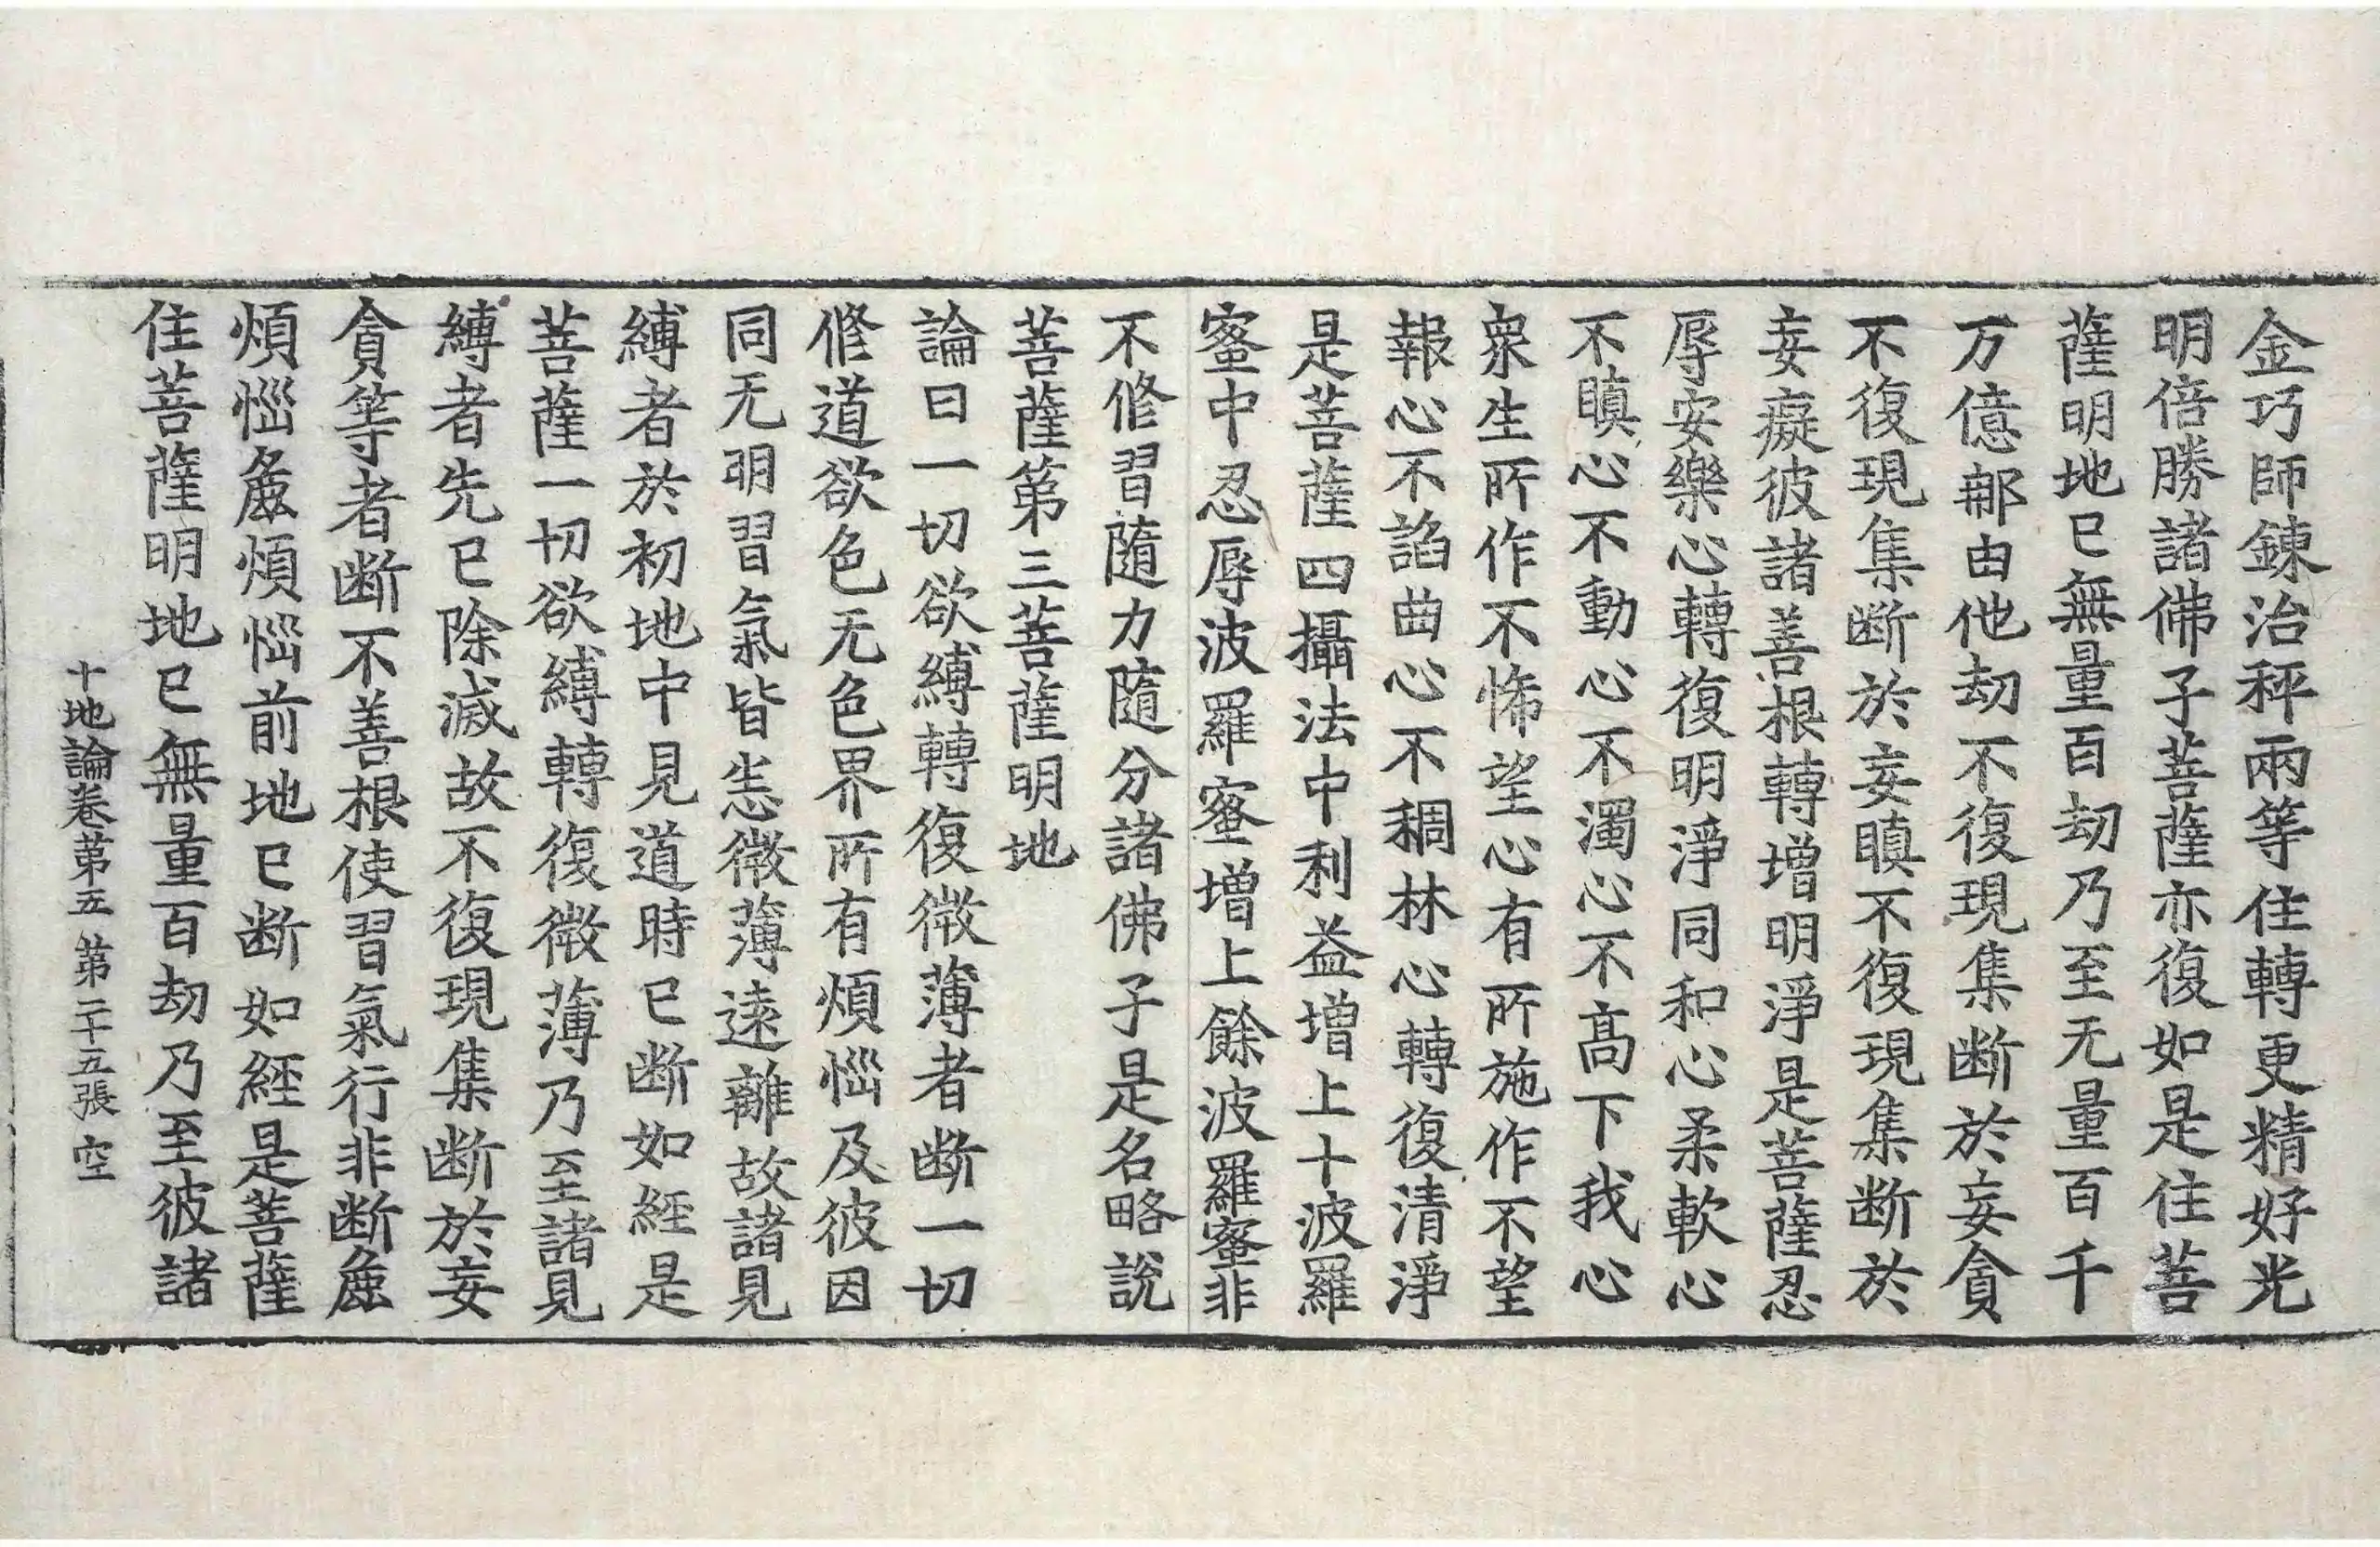 金巧師鍊治秤兩等住轉更精好光
明倍勝諸佛子菩薩亦復如是住菩
薩明地已無量百劫乃至无量百千
万億那由他劫不復現集断於妄貪
不復現集断於妄瞋不復現集断於
妄癡彼諸善根轉增明淨是菩薩忍
辱安樂心轉復明淨同和心柔軟心
不瞋心不動心不濁心不高下我心
衆生所作不悕望心有所施作不望
報心不諂曲心不稠林心轉復清淨
是菩薩四攝法中利益增上十波羅
蜜中忍辱波羅蜜增上餘波羅蜜非
不修習隨力隨分諸佛子是名略說
菩薩第三菩薩明地
論曰一切欲縛轉復微薄者断一切
修道欲色无色界所有煩惱及彼因
同无明習氣皆恙微薄遠離故諸見
縛者於初地中見道時已断如經是
菩薩一切欲縛轉復微薄乃至諸見
縛者先已除滅故不復現集断於妄
貪等者断不善根使習氣行非断麁
煩惱麁煩惱前地已断如經是菩薩
住菩薩明地已無量百劫乃至彼諸
十地論卷第五 第二十五張 空